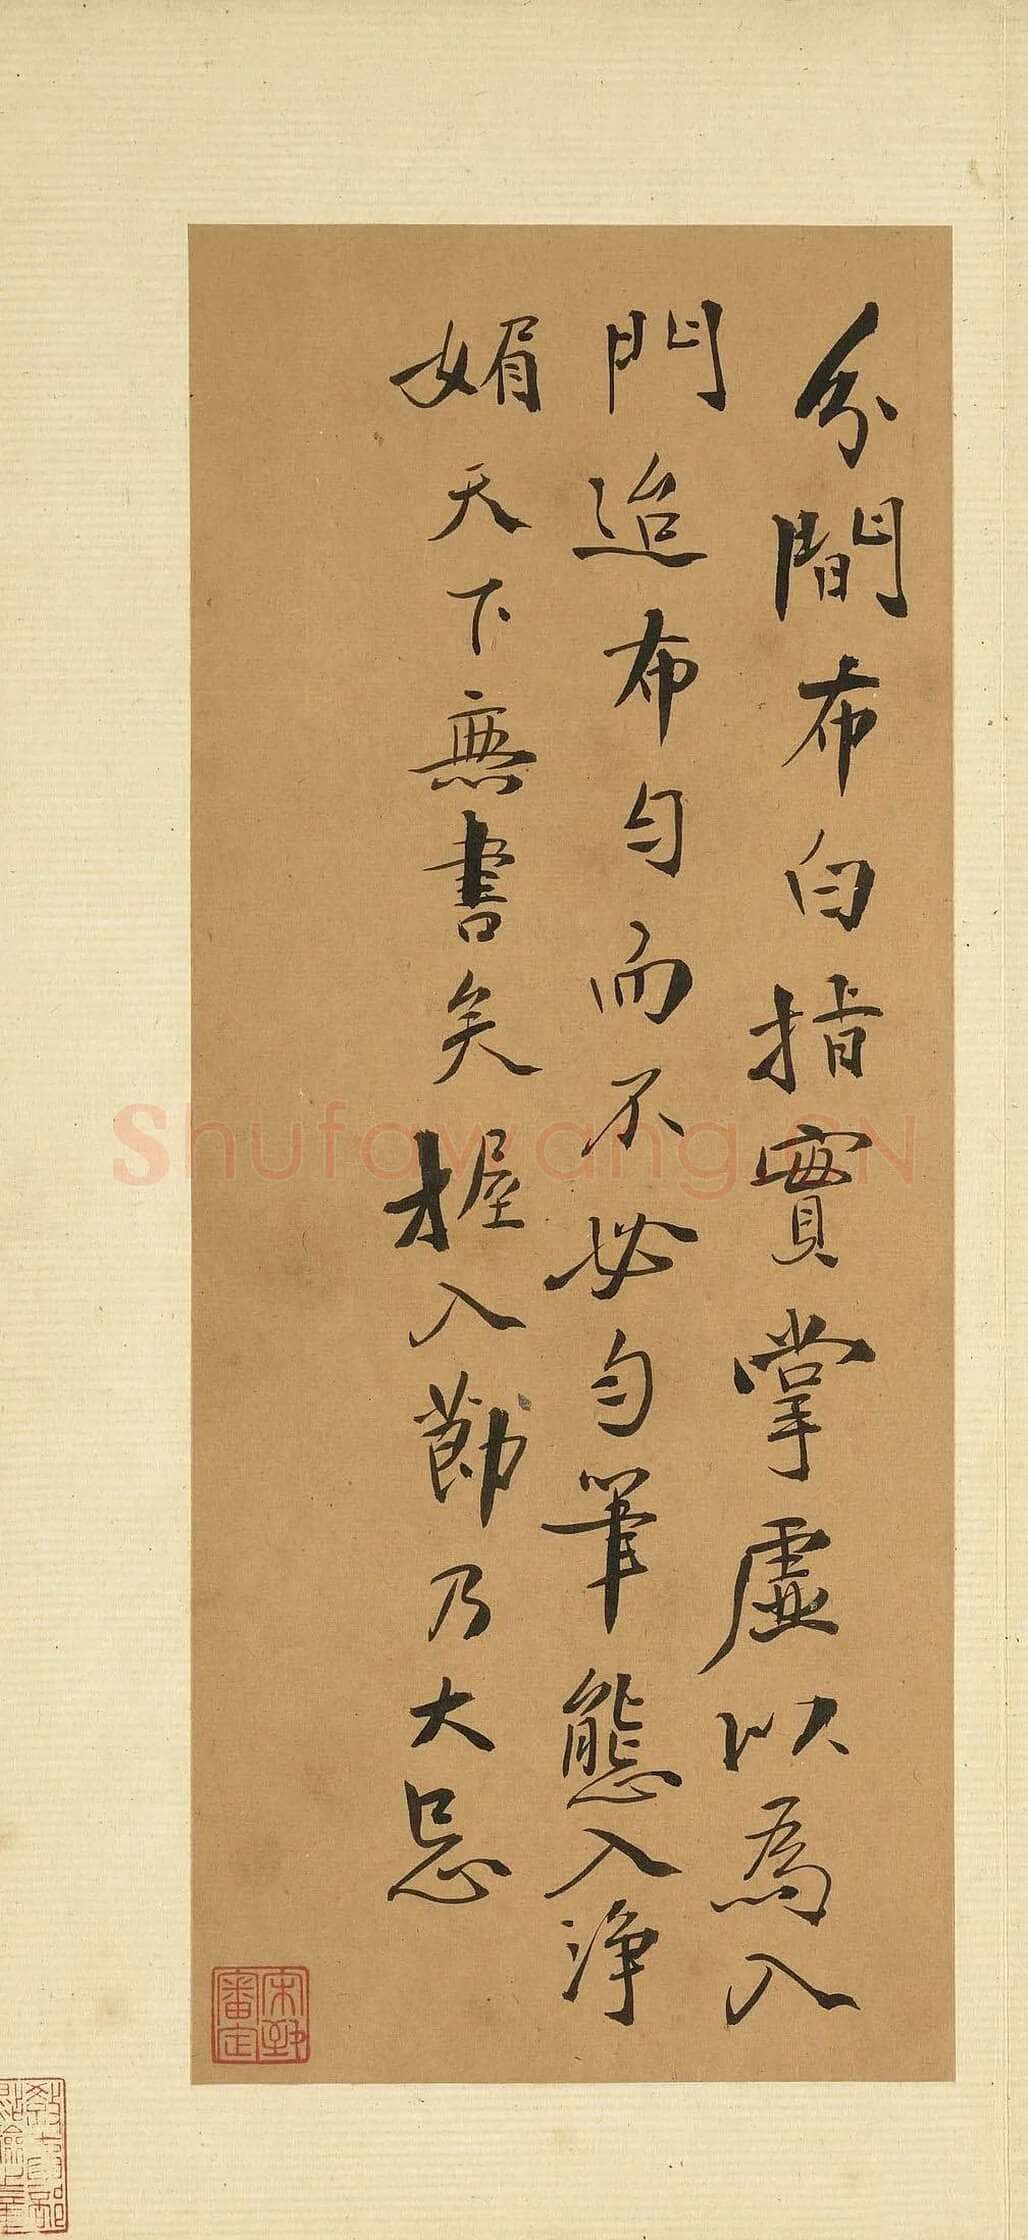 分間布白指實掌虛以為入
門迨布勻而不必勻筆態入淨
媚天下無書矣握入筋乃大忌
宋致審定
Shufawang.CN